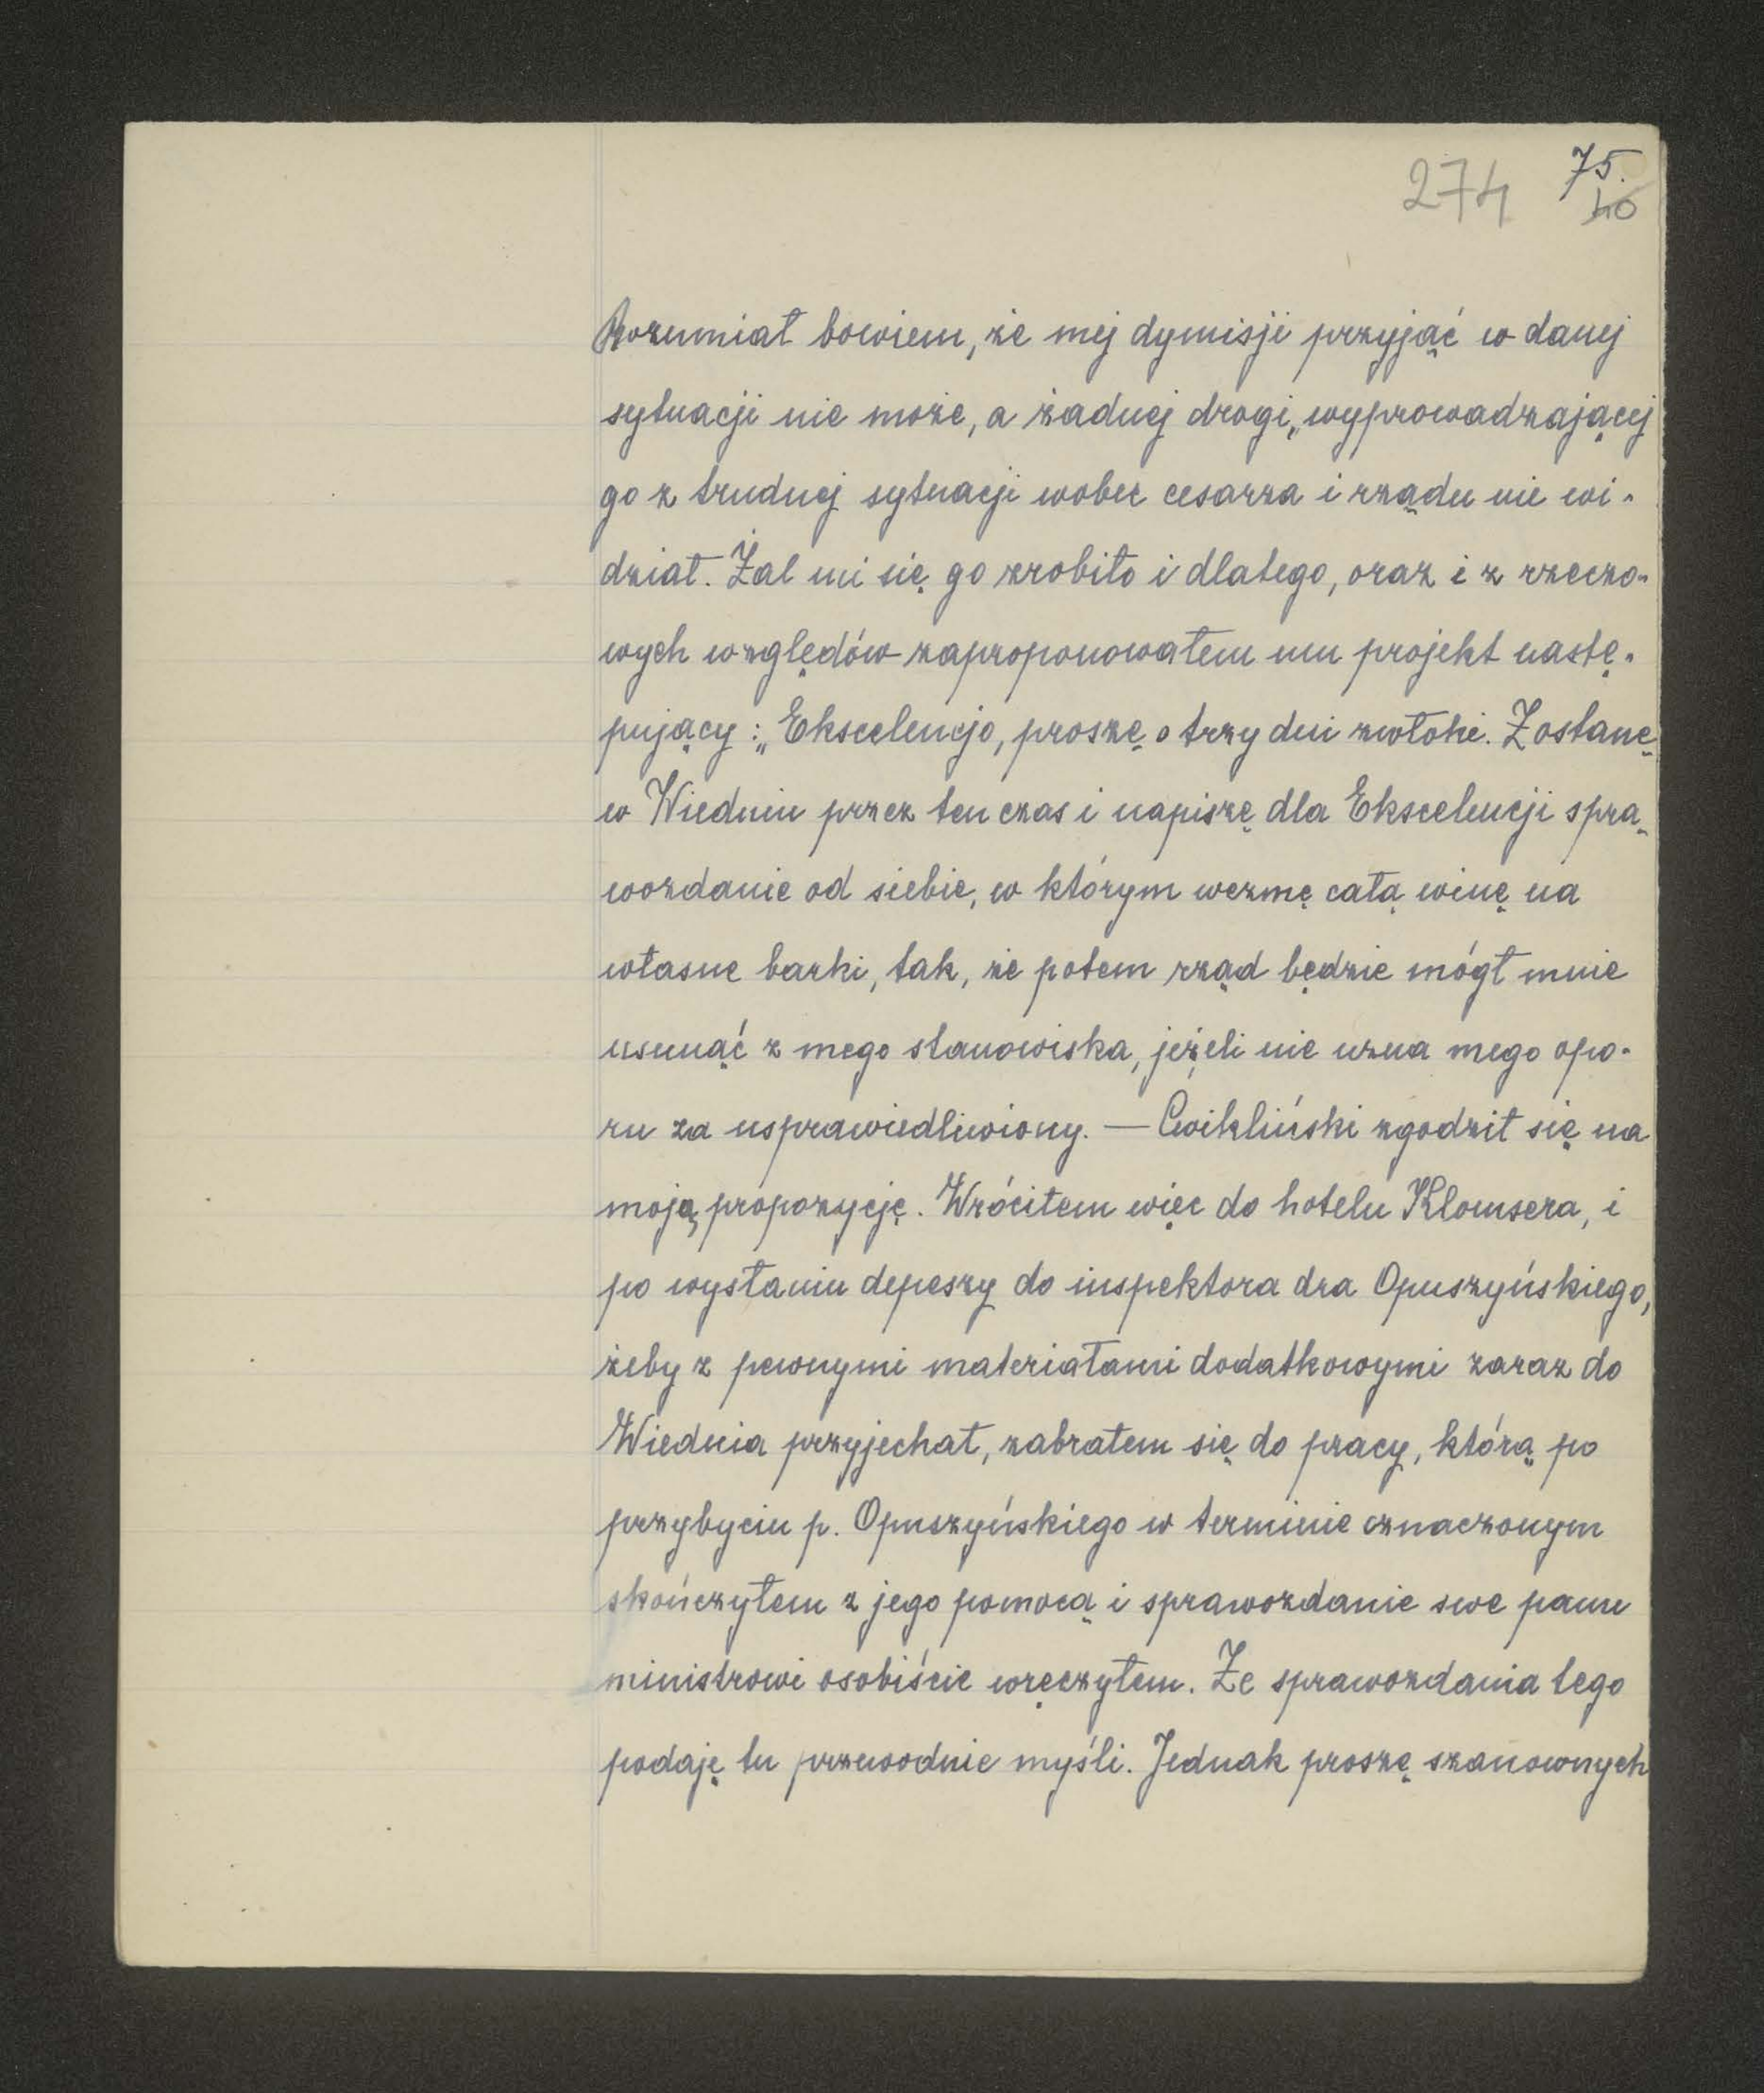 274 75.
40
Rozumiał bowiem, że mej dymisji przyjąć w danej
sytuacji nie może, a żadnej drogi „wyprowadzającej
go z trudnej sytuacji wobec cesarza i rządu nie wi-
dział. Żal mi się go zrobiło i dlatego, oraz i z rzeczo-
wych względów zaproponowałem mu projekt nastę-
pujący: „Ekscelencjo, proszę o trzy dni zwłoki. Zostanę
w Wiedniu przez ten czas i napiszę dla Ekscelencji spra-
wozdanie od siebie, w którym wezmę całą winę na
własne barki, tak, że potem rząd będzie mógł mnie
usunąć z mego stanowiska, jeżeli nie uzna mego opo-
ru za usprawiedliwiony. — Ćwikliński zgodził się na
moją propozycję. Wróciłem więc do hotelu Klomsera, i
po wysłaniu depeszy do inspektora dra Opuszyńskiego,
żeby z pewnymi materiałami dodatkowymi zaraz do
Wiednia przyjechał, zabrałem się do pracy, którą po
przybyciu p. Opuszyńskiego w terminie oznaczonym
skończyłem z jego pomocą i sprawozdanie swe panu
ministrowi osobiście wręczyłem. Ze sprawozdania tego
podaję tu przewodnie myśli. Jednak proszę szanownych